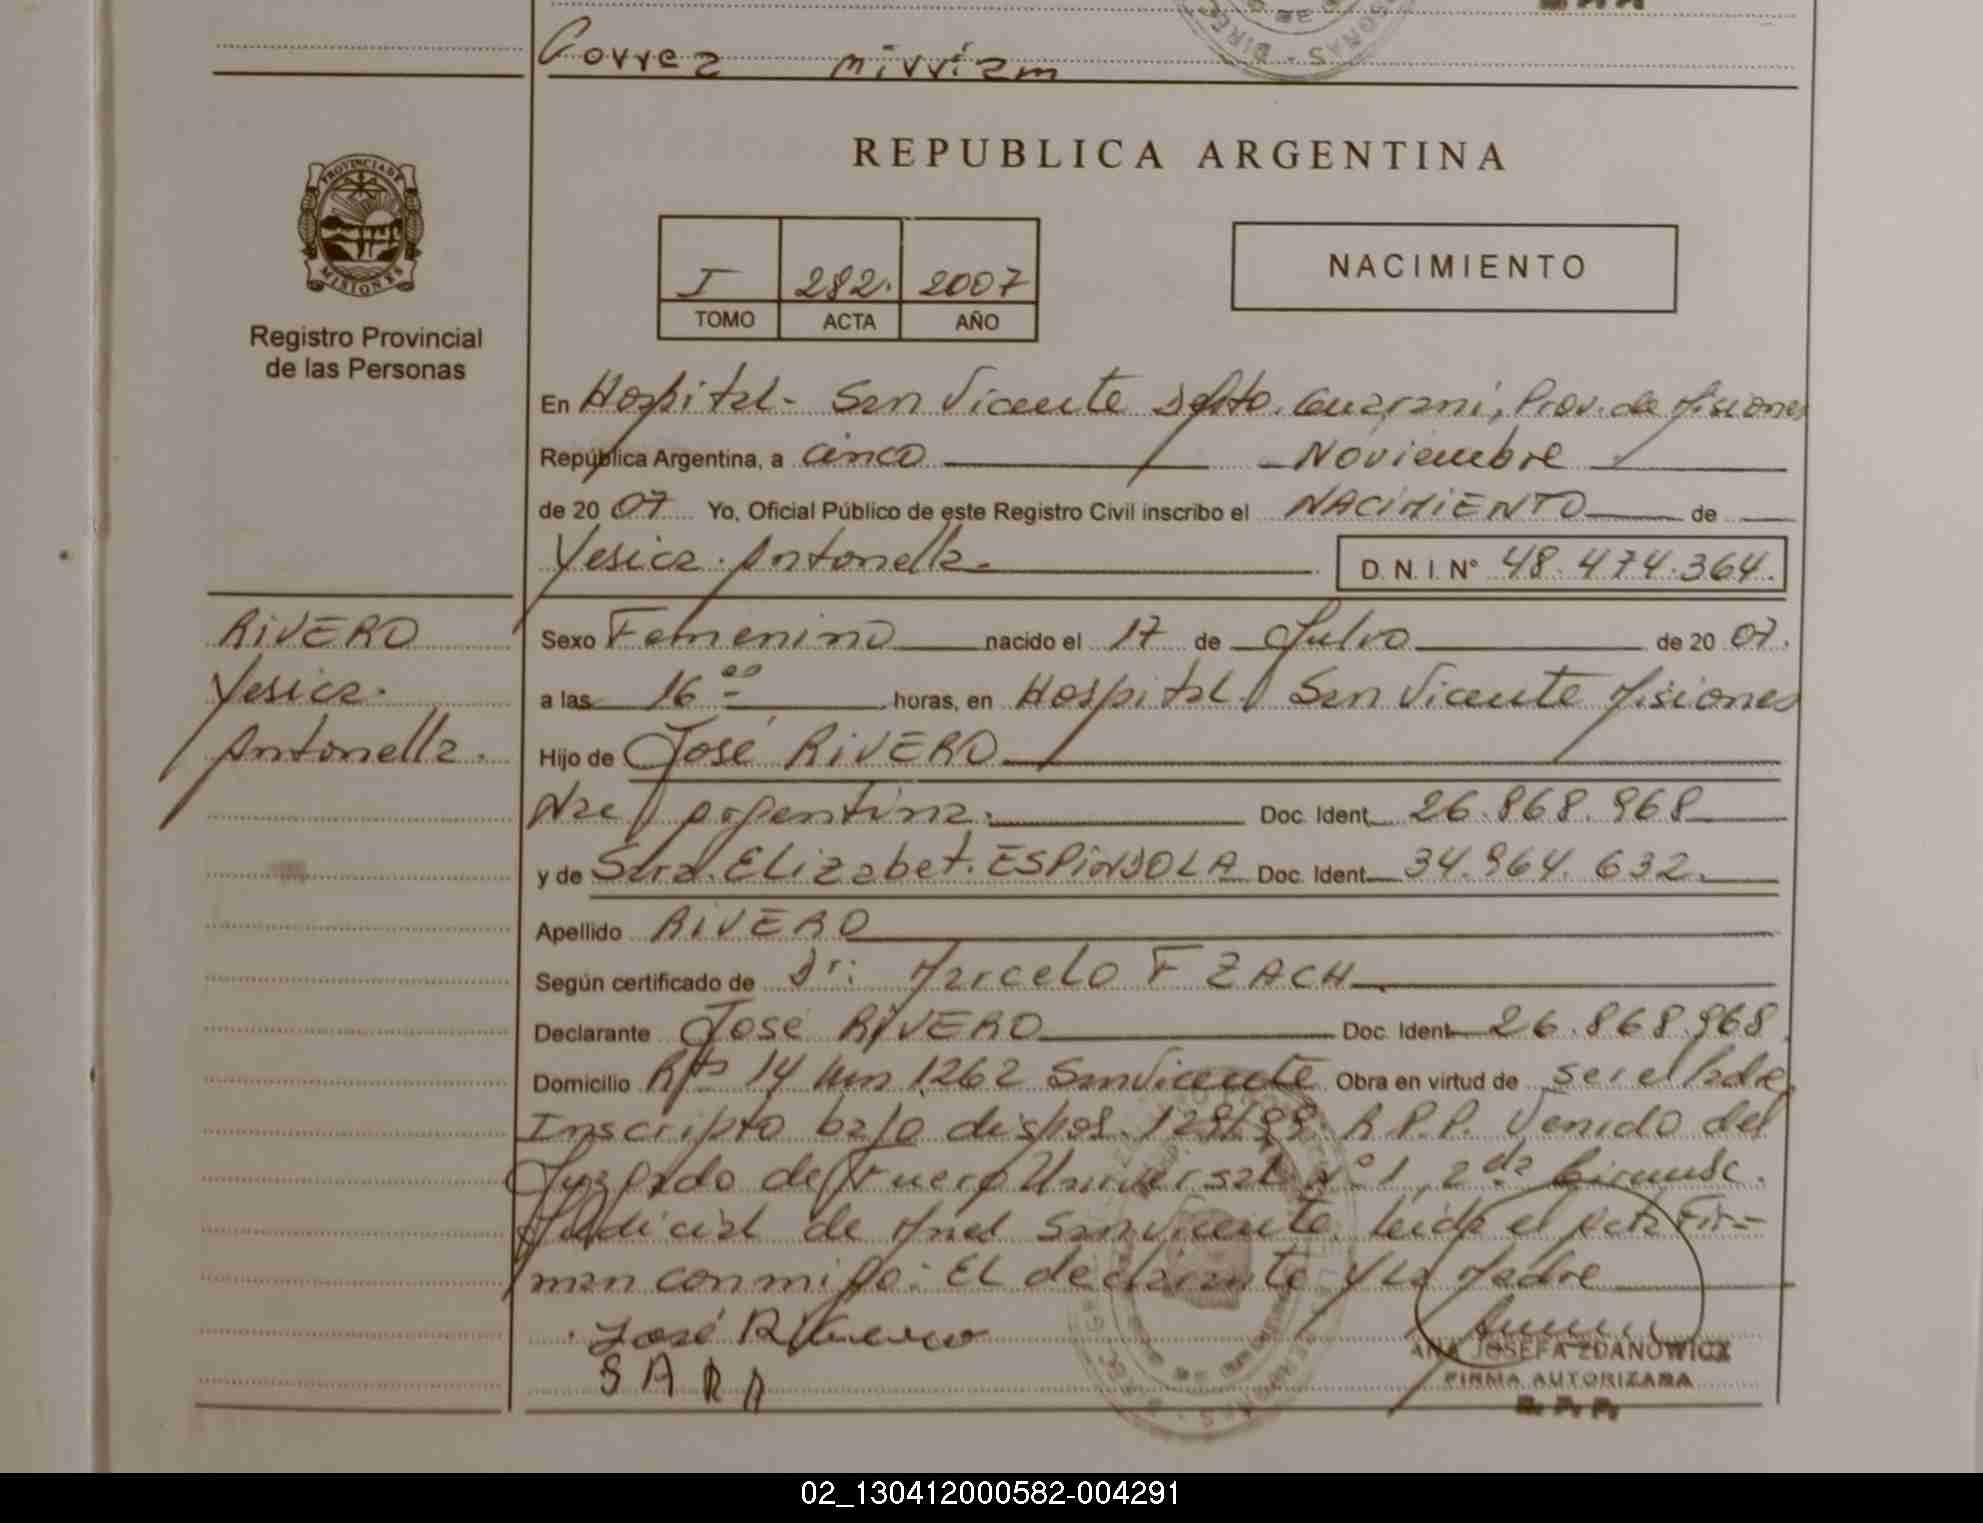 Correa Mirriam
PROVINCIA DE
MISIONES
Registro Provincial
de las Personas
REPUBLICA ARGENTINA
I 282. 2007
TOMO ACTA AÑO
NACIMIENTO
En Hospital - San Vicente Dpto. Guarani, Prov. de Misiones
República Argentina, a cinco Noviembre
de 2007 Yo, Oficial Público de este Registro Civil inscribo el NACIMIENTO de
Yesica Antonella D. N. I. N° 48.474.364.
RIVERO
Yesica
Antonella.
Sexo Femenino nacido el 17 de Julio de 2007.
a las 16 00 horas, en Hospital San Vicente Misiones
Hijo de José RIVERO
Nac argentina. Doc. Ident. 26.868.968
y de Sara Elizabet. ESPINDOLA Doc. Ident. 34.964.632.
Apellido RIVERO
Según certificado de Dr: Marcelo F ZACH
Declarante José RIVERO Doc. Ident. 26.868.968
Domicilio Rta 14 km 1262 San Vicente Obra en virtud de ser el Padre
Inscripto bajo dispos. R.P.P. Venido del
Juzgado de Fuero Universal N° 1, 2da Circunsc.
Judicial de San Vicente. Leida el acta Fir=
man conmigo: El declarante y la Madre
José Rivero
SARA
ANA JOSEFA ZDANOWICZ
FIRMA AUTORIZADA
R. P. P.
02_130412000582-004291